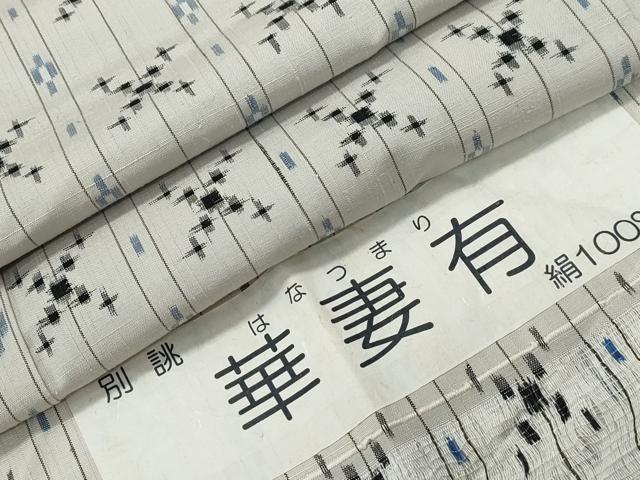 はなつまり
別誂 華妻有 絹100%